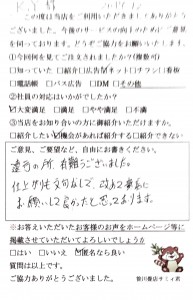 この度は当店をご利用いただきましてありがとう
ございました。今後のサービスの向上のために、ご意見
を伺っております。どうぞご協力お願いいたします。
①今回何を見てご注文されましたか?(複数可)
□知っていた □紹介 □広告 □ネット □チラシ □看板
□電話帳 □バス広告 □DM □その他
②社員の対応はいかがでしたか?
☑大変満足 □満足 □やや満足 □不満
③当店をお知り合いの方に御紹介いただけますか?
□紹介したい ☑機会があれば紹介する □紹介できない
ご意見、ご要望など、自由にお書きください。
遠方の所、有難うございました。
仕上がりも文句なしで、改めて
お願いして良かったと思っております。
※お答えいただいたお客様のお声をホームページ等に
掲載させていただいてよろしいでしょうか
□はい □いいえ ☑匿名なら良い
質問は以上です。
ご協力ありがとうございました。